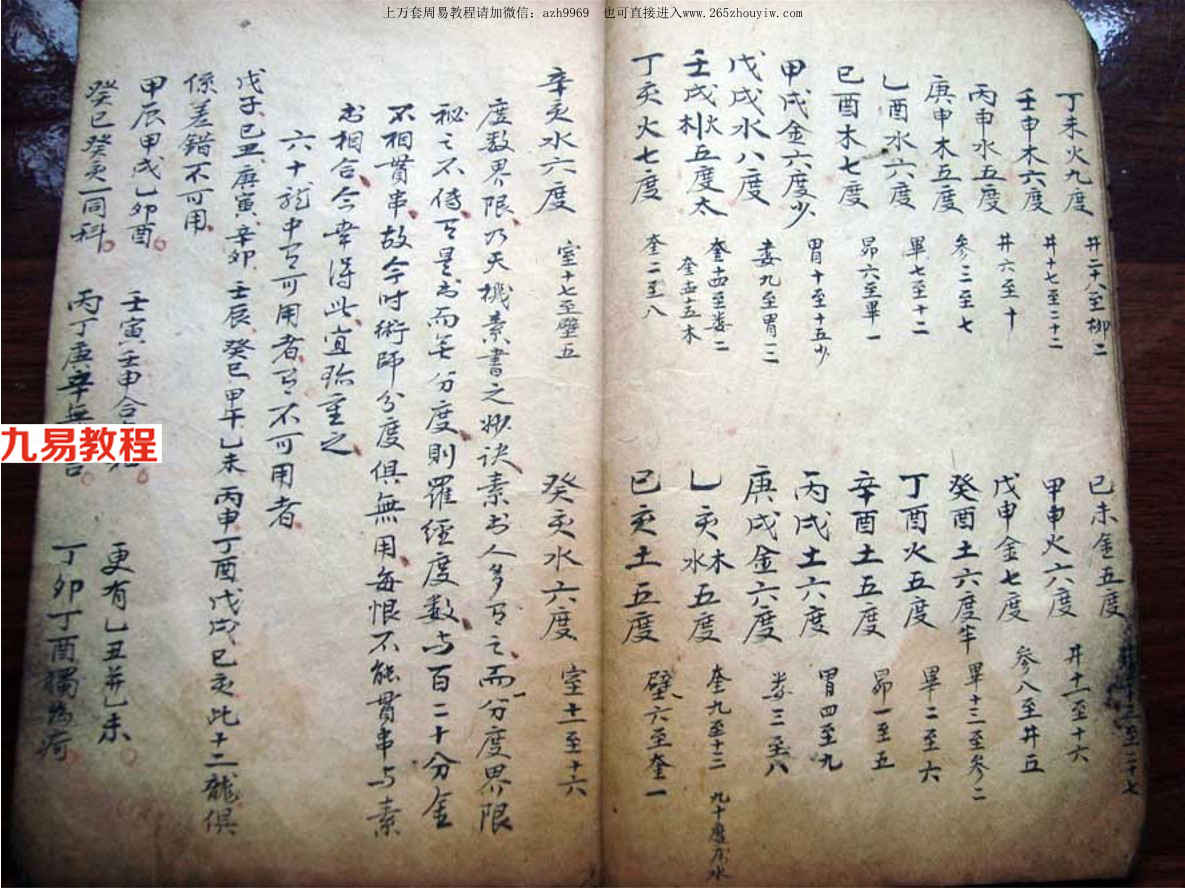 上万套周易教程请加微信：azh9969 也可直接进入www.265zhouyiw.com
丁未火九度 井二十八至柳二 己未金五度
壬申木六度 井十七至二十二 甲申火六度 井十一至十六
丙申水五度 井六至十 戊申金七度 参八至井五
庚申木五度 参三至七 癸酉土六度半 畢十三至参二
乙酉水六度 畢七至十二 丁酉火五度 畢二至六
己酉木七度 昴六至畢一 辛酉土五度 昴一至五
甲戌金六度少 胃十至十五少 丙戌土六度 胃四至九
戊戌水八度 婁九至胃二 庚戌金六度 婁三至八
壬戌木火五度太 奎十四至婁二 奎五木 乙亥水木五度 奎九至十三
丁亥火七度 奎二至八 己亥土五度 壁六至奎一
辛亥水六度 室十七至壁五 癸亥水六度 室十一至十六
度数界限乃天機素書之妙訣素书人多有之而分度界限
秘之不傳有是书而無分度則羅經度数与百二十分金
不相貫串故今时術師分度俱無用每恨不能貫串与素
书相合今幸得此宜珍重之
六十龍中有可用者有不可用者
戊子己丑庚寅辛卯壬辰癸巳甲午乙未丙申丁酉戊戌己亥此十二龍俱
係差錯不可用
甲辰甲戌乙卯酉 壬寅壬申合 更有乙丑并乙未
癸巳癸亥一同科 丙丁庚辛 丁卯丁酉獨為奇
九易教程